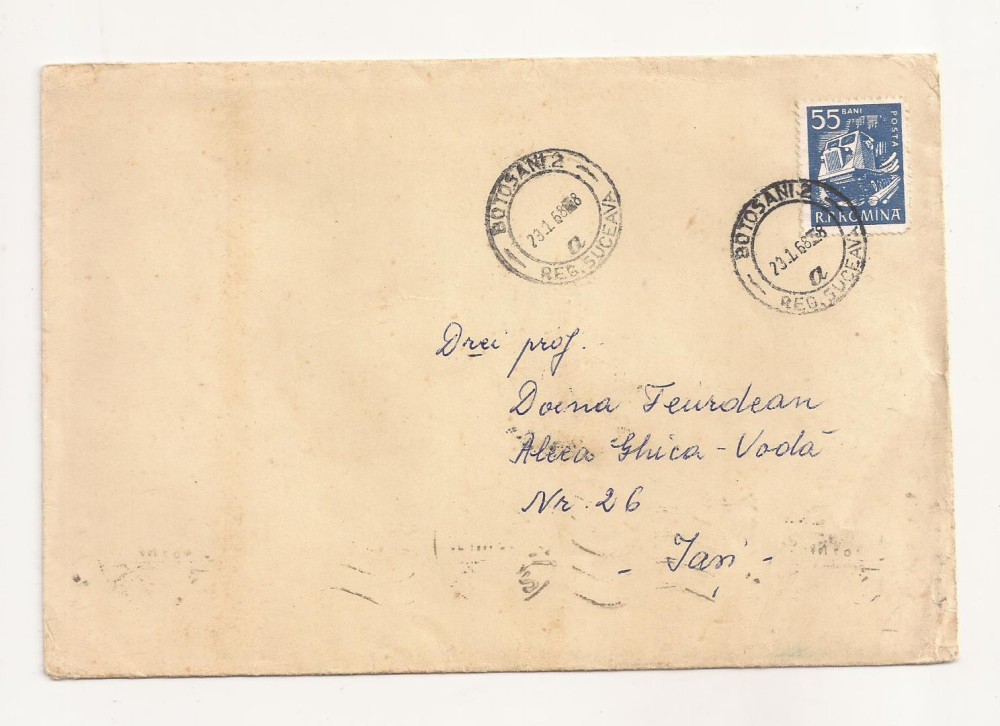 55 BANI
POSTA
R.P.ROMINA
BOTOSANI 2
23.1.68
a
REG. SUCEAVA
BOTOSANI 2
23.1.68
a
REG. SUCEAVA
Drei prof.
Doina Teurdean
Aleea Ghica-Vodă
Nr. 26
- Iași -